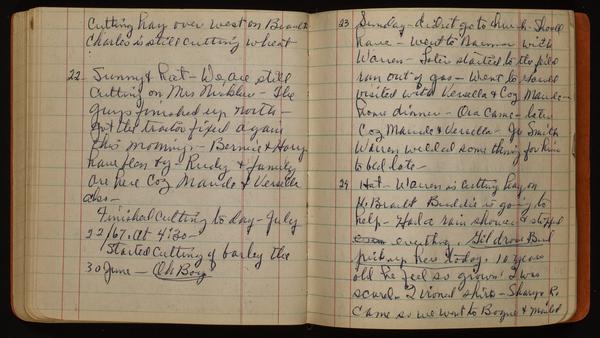 Cutting hay over west on
Charles is still cutting wheat
22 - Sunny & hot - We are still
cutting on Mrs - The
guys finished up north -
got the tractor fixed again
this morning - Bernie & Hary
have flew by - Rudy & family
are here Coz Maude & Versella
also -
Finished cutting to day - July
22/67. At 4:30 -
Started cutting of barley the
30 June - Oh Boy
23 Sunday - didn't go to church - Should
have - went to with
Warren - Later started to the
ran out of gas - Went to
visited with Versella & Coz Maude -
home dinner - Ora came - later
Coz Maude & Versella - Jr Smith
Warren welded some thing for him
to bed late -
24 Hot - Warren is cutting hay on
Buddie is going to
help - Had a rain shower stopped
everything. Gil drove Bud
pickup here today. 10 years
old he feel so grown! I was
scared. I ironed shirts - Sharyn R.
came so we went to Boyne & mailed